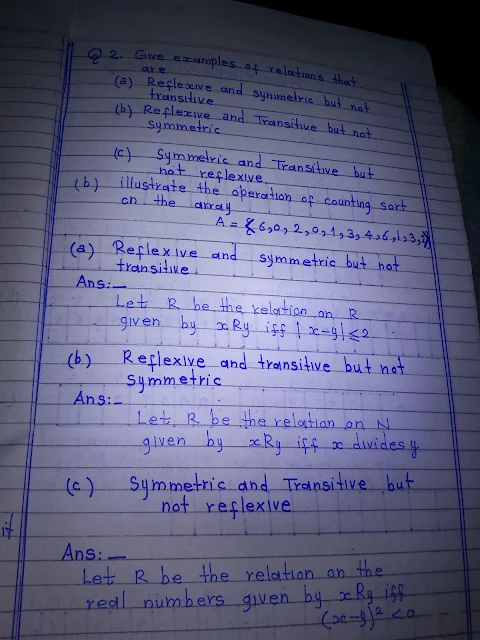 Q 2. Give examples of relations that
are
(a) Reflexive and symmetric but not
transitive
(b) Reflexive and Transitive but not
symmetric
(c) Symmetric and Transitive but
not reflexive
(b) illustrate the operation of counting sort
on the array
A = {6,0,2,0,1,3,4,6,1,3,
(a) Reflexive and symmetric but not
transitive.
Ans:—
Let R be the relation on R
given by xRy iff |x-y|≤2.
(b) Reflexive and transitive but not
symmetric
Ans:-
Let R be the relation on N
given by xRy iff x divides y
(c) Symmetric and Transitive but
not reflexive
it
Ans:—
Let R be the relation on the
real numbers given by xRy iff
(x-y)² <0